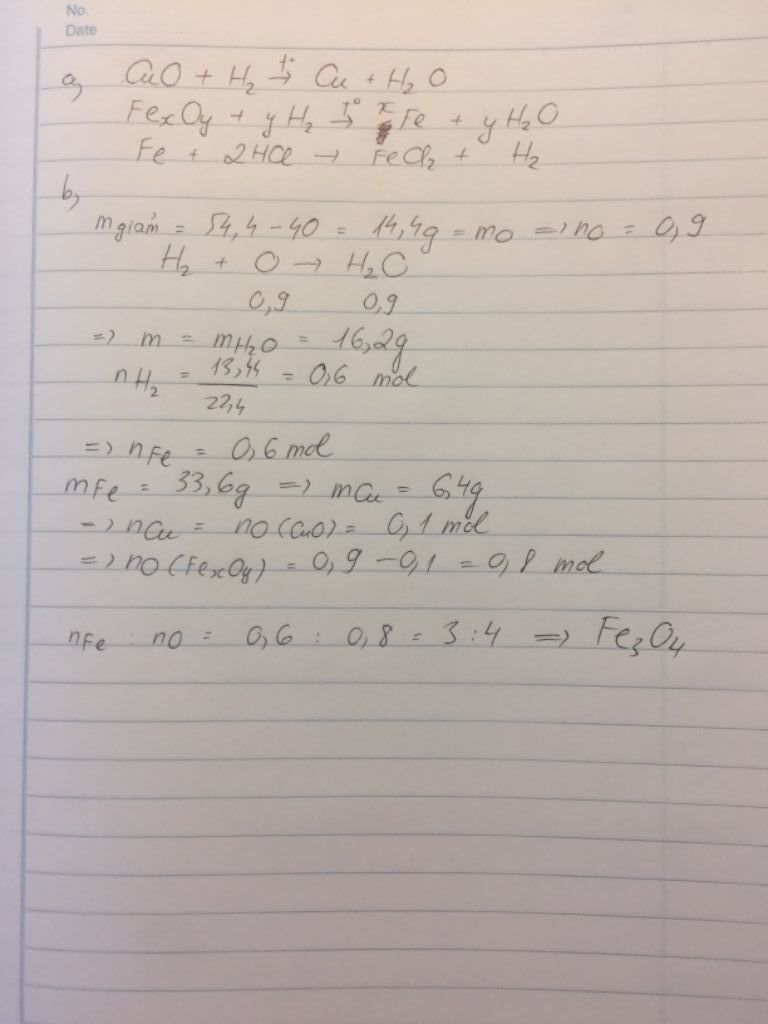 No.
Date
a, CuO + H₂ →t° Cu + H₂O
FexOy + yH₂ →t° xFe + yH₂O
Fe + 2HCl → FeCl₂ + H₂
b,
m giảm = 54,4 - 40 = 14,4g = mO => nO = 0,9
H₂ + O → H₂O
0,9 0,9
=> m = mH₂O = 16,2g
nH₂ = 13,44/22,4 = 0,6 mol
=> nFe = 0,6 mol
mFe = 33,6g => mCu = 6,4g
-> nCu = nO(CuO) = 0,1 mol
=> nO(FexOy) = 0,9 - 0,1 = 0,8 mol
nFe : nO = 0,6 : 0,8 = 3:4 => Fe₃O₄